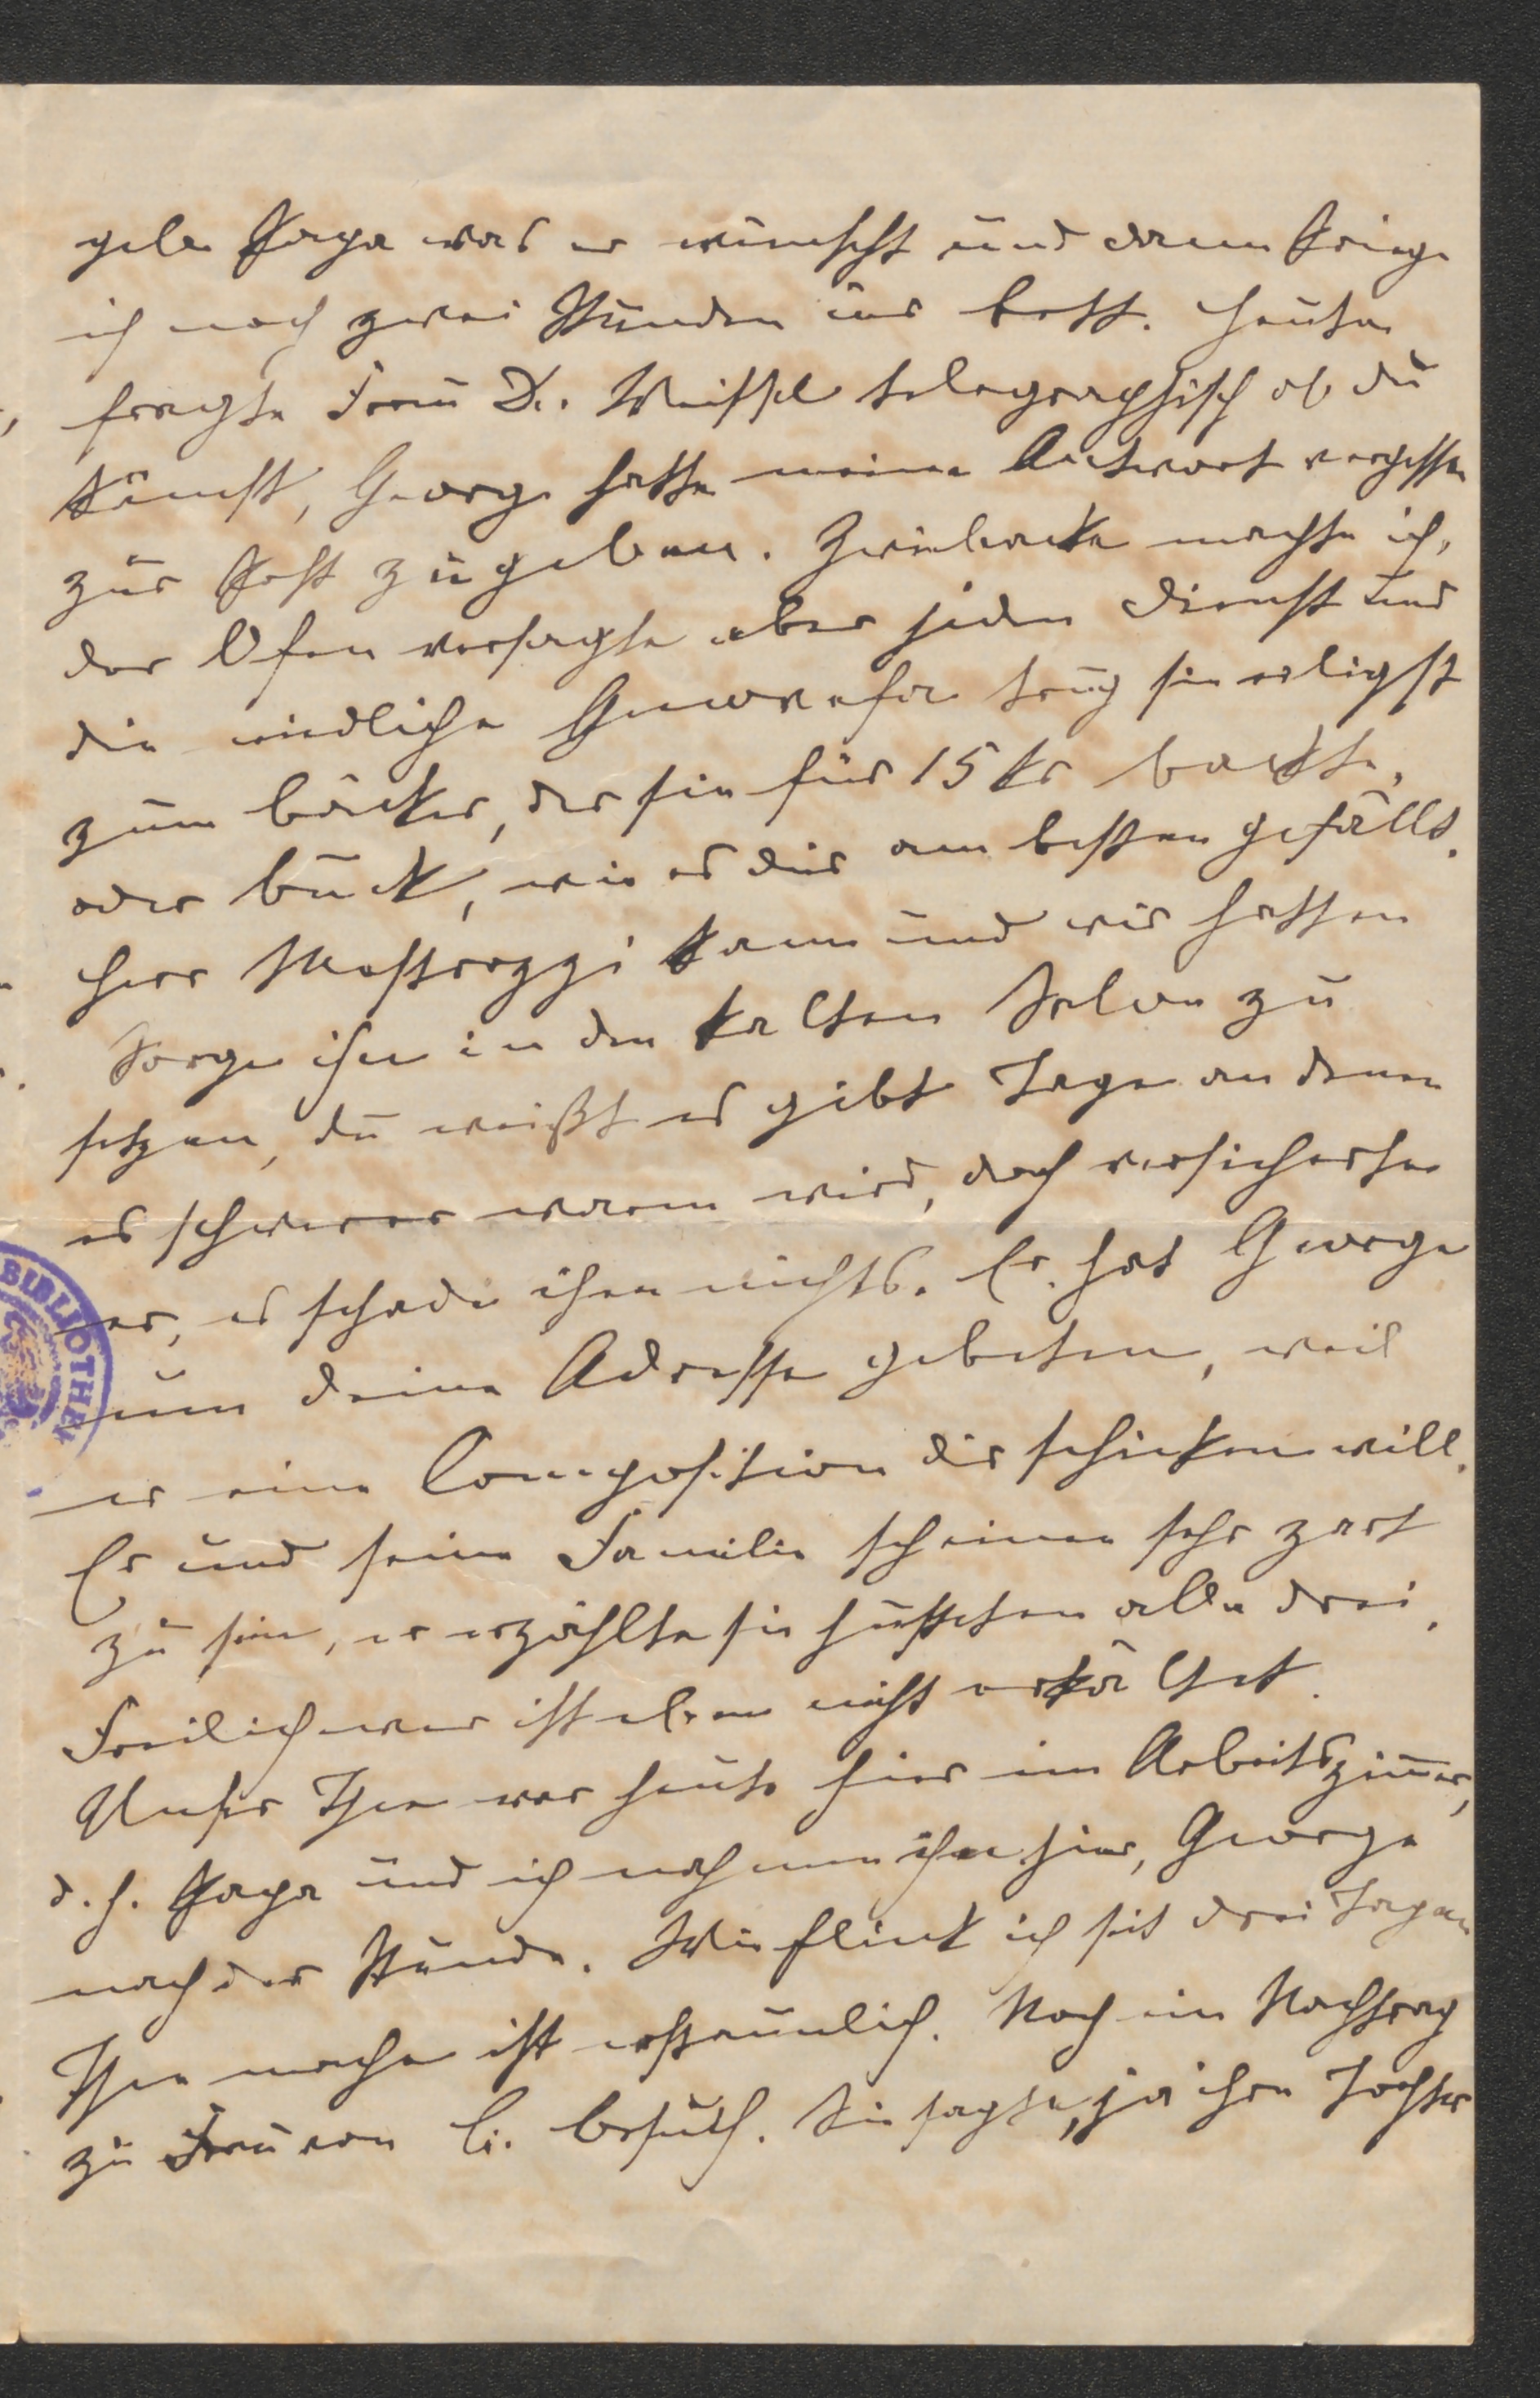 gebe Papa was er wünscht und dann krieche
ich noch zwei Stunden ins Bett. Heute
fragte Frau Dr. Weissel telegraphisch ob du
kämst, George hatte meine Antwort vergessen
zur Post zu geben. Zwiebacke machte ich,
der Ofen versagte aber jeden Dienst und
die niedliche Genovefa trug sie eiligst
zum Bäcker, der sie für 15 kr backte,
oder buck, wie es dir am besten gefällt.
Herr Mastrozzi kam und wir hatten
Sorge ihn in den kalten Salon zu
setzen, du weißt es gibt Tage an denen
es schwerer warm wird, doch versicherte
er, es schade ihm nichts. Er hat George
um deine Adresse gebeten, weil
er eine Composition dir schicken will.
Er und seine Familie scheinen sehr zart
zu sein, er erzählte sie husteten alle drei.
Freilich wer ist eben nicht erkältet.
Unser Thee war heute hier im Arbeitszimer,
d. h. Papa und ich nahmen ihn hier, George
nach der Stunde. Wie flink ich seit drei Tagen
Thee mache ist erstaunlich. Noch ein Nachtrag
zu Frau von Besuch. Sie sagte, ja ihre Tochter
BIBLIOTHEK